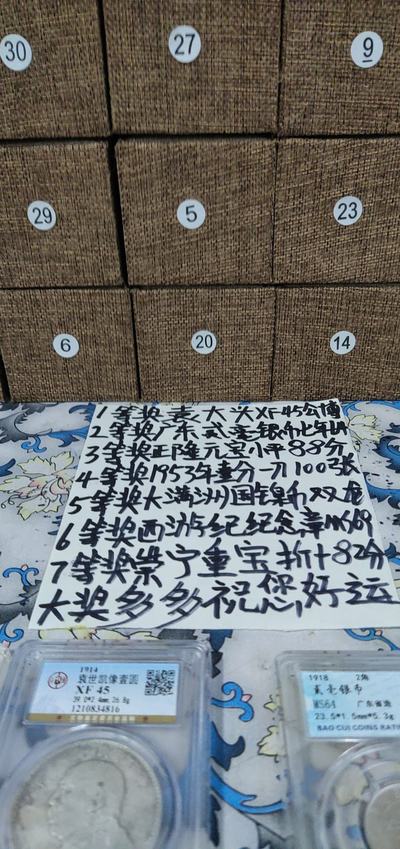 30
27
9
29
5
23
6
20
14
1等奖袁大头XF45公博
2等奖广东贰毫银币七年64
3等奖正隆元宝小平88分
4等奖1953年壹分一刀100张
5等奖大满洲国镍币双龙
6等奖西游纪纪念章MS69
7等奖崇宁重宝折十82分
大奖多多祝您好运
1914
袁世凯像壹圆
XF 45
39.0*2.4mm 26.8g
1210834816
1918 2角
贰毫银币
MS64 广东省造
23.5*1.5mm*5.3g
BAO CUI COINS RATIN